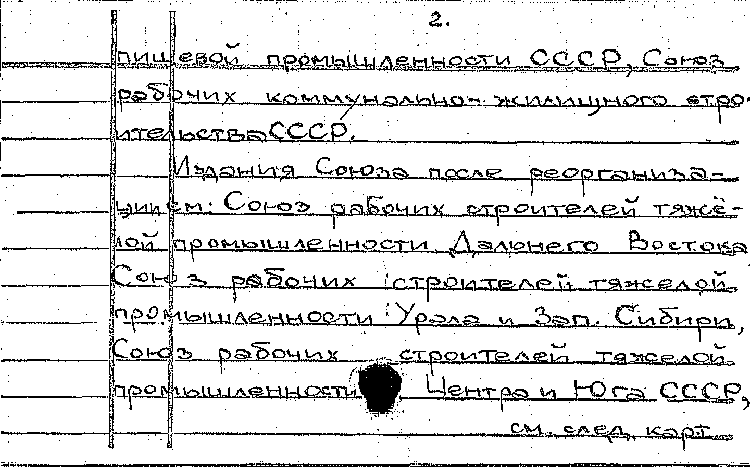 2.
пищевой промышленности СССР, Союз
рабочих коммунально-жилищного стро-
ительства СССР.
Издания Союза после реорганиза-
ции см: Союз рабочих строителей тяжё-
лой промышленности Дальнего Востока
Союз рабочих строителей тяжелой
промышленности Урала и Зап. Сибири,
Союз рабочих строителей тяжелой
промышленности Центра и Юга СССР,
см. след. карт